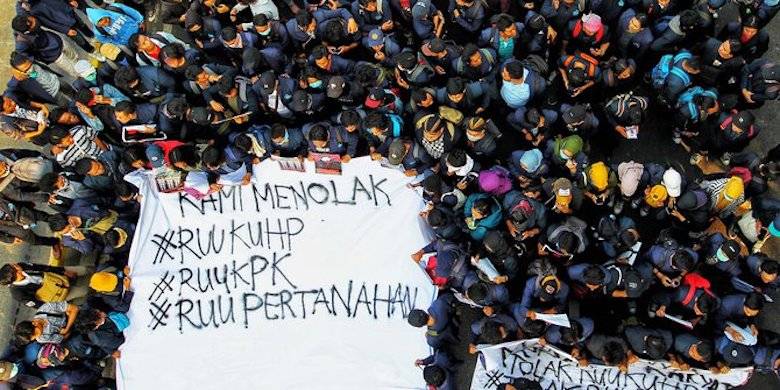 KAMI MENOLAK
#RUU KUHP
#RUU KPK
#RUU PERTANAHAN